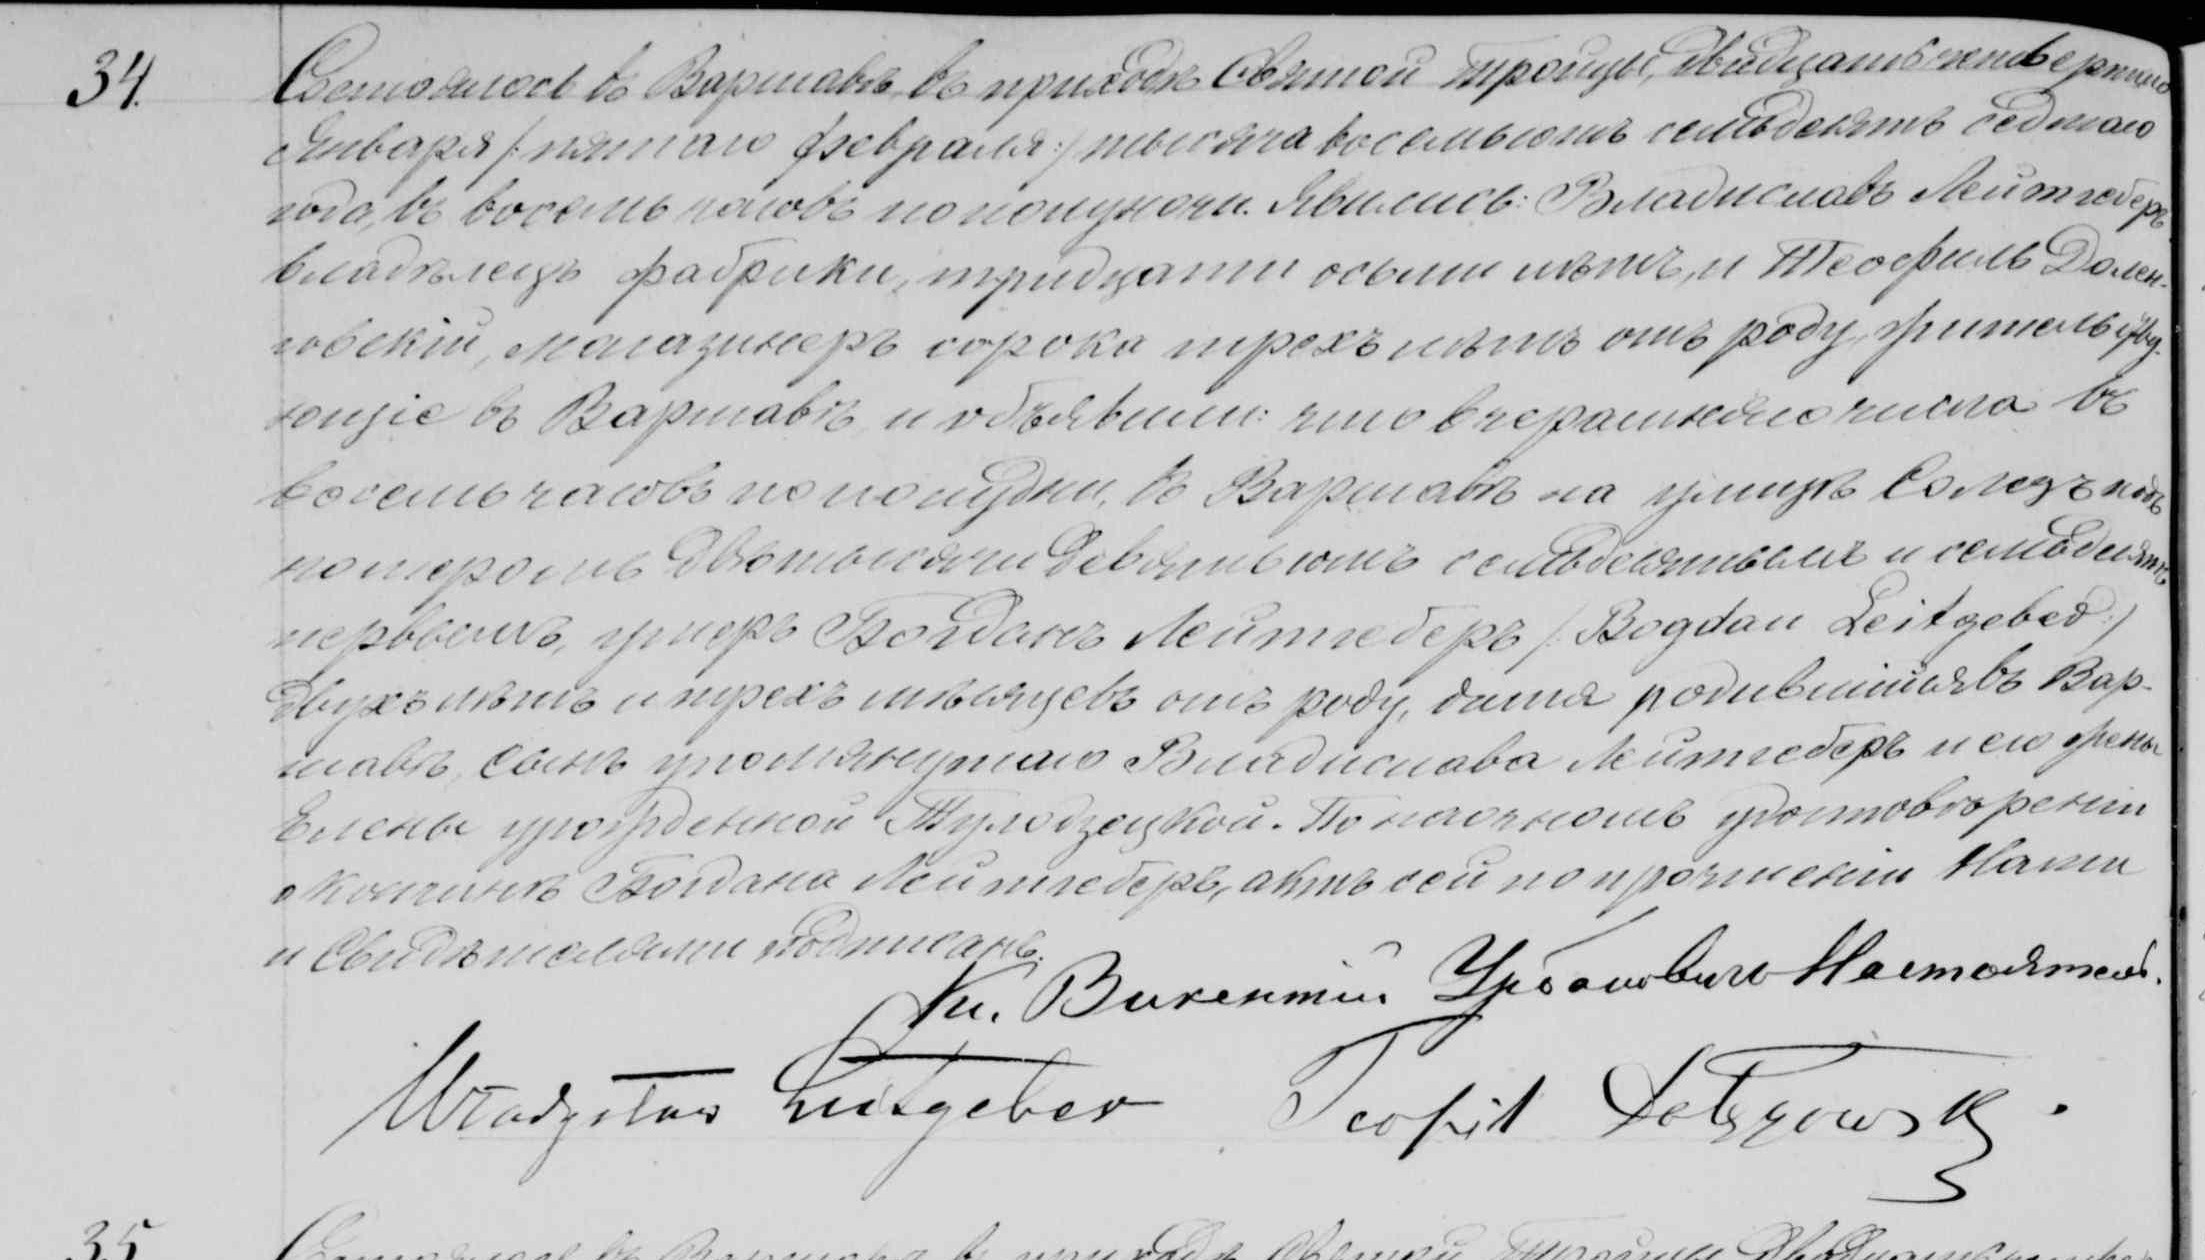 34.
Состоялось въ Варшавѣ, въ приходѣ Святой Троицы, двадцать четвертаго
Января /: пятаго февраля :/ тысяча восемьсотъ семьдесятъ седмаго
года, въ восемь часовъ пополуночи. Явились: Владиславъ Лейтгеберъ,
владѣлецъ фабрики, тридцати осьми лѣтъ, и Теофиль Долен-
говскій, магазинеръ сорока трехъ лѣтъ отъ роду, жительству-
ющіе въ Варшавѣ и объявили: что вчерашняго числа въ
восемь часовъ пополудни, въ Варшавѣ на улицѣ Солецъ подъ
номеромъ двѣтысячи девятьсотъ семьдесятымъ и семьдесятъ
первымъ, умеръ Богданъ Лейтгеберъ /: Bogdan Leitgeber :/
двухъ лѣтъ и трехъ мѣсяцевъ отъ роду, дитя родившійся въ Вар-
шавѣ, сынъ упомянутаго Владислава Лейтгеберъ и его жены
Елены урожденной Тулодзецкой. По наочномъ удостовѣреніи
о кончинѣ Богдана Лейтгеберъ, актъ сей по прочтеніи Нами
и Свидѣтелями подписанъ.
Кс. Викентій Урбановичъ Настоятель.
Władysław Leitgeber Teofil
35
Состоялось въ Варшавѣ въ приходѣ Святой Троицы